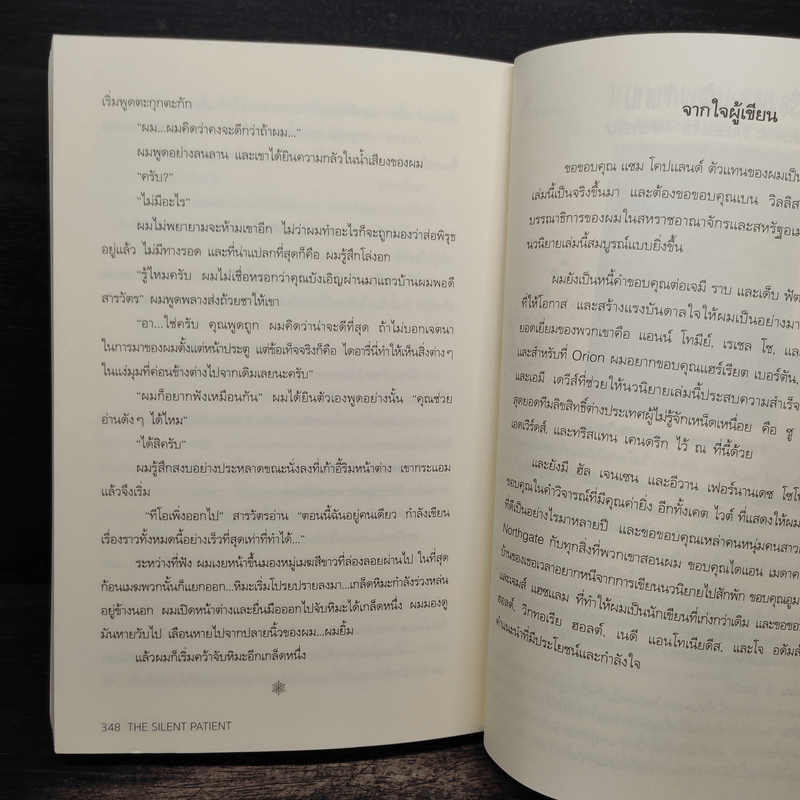 เริ่มพูดตะกุกตะกัก
“ผม...ผมคิดว่าคงจะดีกว่าถ้าผม...”
ผมพูดอย่างลนลาน และเขาได้ยินความกลัวในน้ำเสียงของผม
“ครับ?”
“ไม่มีอะไร”
ผมไม่พยายามจะห้ามเขาอีก ไม่ว่าผมทำอะไรก็จะถูกมองว่าส่อพิรุธ
อยู่แล้ว ไม่มีทางรอด และที่น่าแปลกที่สุดก็คือ ผมรู้สึกโล่งอก
“รู้ไหมครับ ผมไม่เชื่อหรอกว่าคุณบังเอิญผ่านมาแถวบ้านผมพอดี
สารวัตร” ผมพูดพลางส่งถ้วยชาให้เขา
“อา...ใช่ครับ คุณพูดถูก ผมคิดว่าน่าจะดีที่สุด ถ้าไม่บอกเจตนา
ในการมาของผมตั้งแต่หน้าประตู แต่ข้อเท็จจริงก็คือ ไดอารี่นี่ทำให้เห็นสิ่งต่างๆ
ในแง่มุมที่ค่อนข้างต่างไปจากเดิมเลยนะครับ”
“ผมก็อยากฟังเหมือนกัน” ผมได้ยินตัวเองพูดอย่างนั้น “คุณช่วย
อ่านดังๆ ได้ไหม”
“ได้สิครับ”
ผมรู้สึกสงบอย่างประหลาดขณะนั่งลงที่เก้าอี้ริมหน้าต่าง เขากระแอม
แล้วจึงเริ่ม
“ทีโอเพิ่งออกไป” สารวัตรอ่าน “ตอนนี้ฉันอยู่คนเดียว กำลังเขียน
เรื่องราวทั้งหมดนี้อย่างเร็วที่สุดเท่าที่ทำได้...”
ระหว่างที่ฟัง ผมเงยหน้าขึ้นมองหมู่เมฆสีขาวที่ล่องลอยผ่านไป ในที่สุด
ก้อนเมฆพวกนั้นก็แยกออก...หิมะเริ่มโปรยปรายลงมา...เกล็ดหิมะกำลังร่วงหล่น
อยู่ข้างนอก ผมเปิดหน้าต่างและยื่นมือออกไปจับหิมะได้เกล็ดหนึ่ง ผมมองดู
มันหายวับไป เลือนหายไปจากปลายนิ้วของผม...ผมยิ้ม
แล้วผมก็เริ่มคว้าจับหิมะอีกเกล็ดหนึ่ง
348 THE SILENT PATIENT
จากใจผู้เขียน
ขอขอบคุณ แซม โคปแลนด์ ตัวแทนของผมเป็น
เล่มนี้เป็นจริงขึ้นมา และต้องขอขอบคุณเบน วิลลิส
บรรณาธิการของผมในสหราชอาณาจักรและสหรัฐอเม
นวนิยายเล่มนี้สมบูรณ์แบบยิ่งขึ้น
ผมยังเป็นหนี้คำขอบคุณต่อเจมี ราบ และเด็บ ฟัต
ที่ให้โอกาส และสร้างแรงบันดาลใจให้ผมเป็นอย่างมา
ยอดเยี่ยมของพวกเขาคือ แอนน์ โทมีย์, เรเชล โช, แล
และสำหรับที่ Orion ผมอยากขอบคุณแฮร์เรียต เบอร์ตัน,
และเอมี เดวีส์ที่ช่วยให้นวนิยายเล่มนี้ประสบความสำเร็จ
สุดยอดทีมลิขสิทธิ์ต่างประเทศผู้ไม่รู้จักเหน็ดเหนื่อย คือ ซู
เอดเวิร์ดส์, และทริสแทน เคนดริก ไว้ ณ ที่นี้ด้วย
และยังมี ฮัล เจนเซน และอีวาน เฟอร์นานเดซ โซโ
ขอบคุณในคำวิจารณ์ที่มีคุณค่ายิ่ง อีกทั้งเคต ไวต์ ที่แสดงให้ผม
ที่ดีเป็นอย่างไรมาหลายปี และขอขอบคุณเหล่าคนหนุ่มคนสาวแ
Northgate กับทุกสิ่งที่พวกเขาสอนผม ขอบคุณไดแอน เมดาค
บ้านของเธอเวลาอยากหนีจากการเขียนนวนิยายไปสักพัก ขอบคุณอูม
และเจมส์ แฮซแลม ที่ทำให้ผมเป็นนักเขียนที่เก่งกว่าเดิม และขอขอ
ฮอลต์, วิกทอเรีย ฮอลต์, เนดี แอนโทเนียดีส, และโจ อดัมส์
คำแนะนำที่มีประโยชน์และกำลังใจ